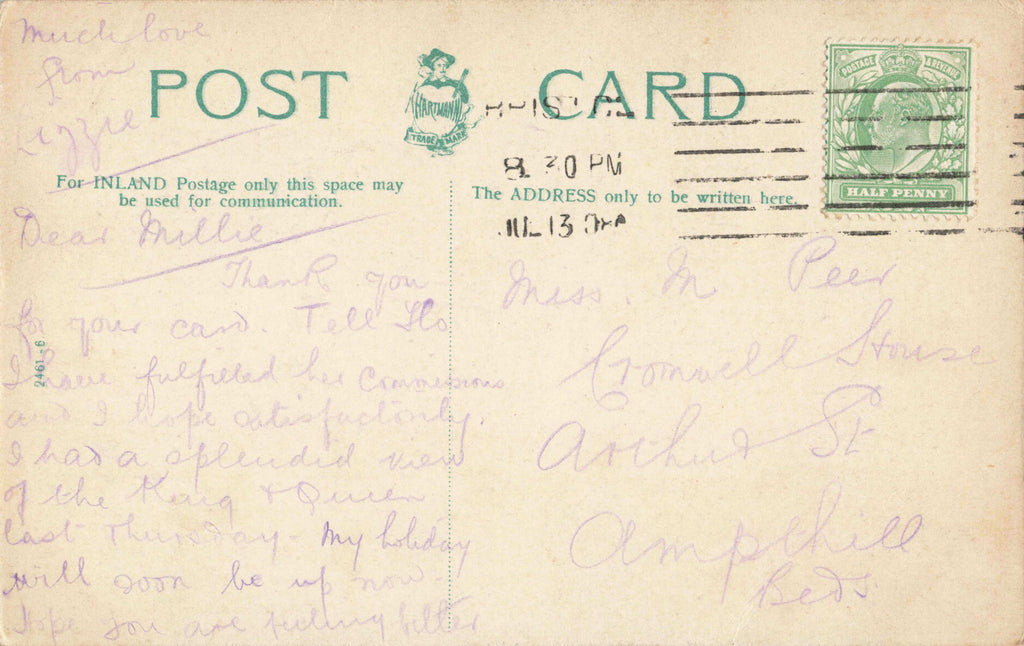 Much love
from
Lizzie
POST CARD
HARTMANN
TRADE MARK
POSTAGE & REVENUE
HALF PENNY
BRISTOL
8. 30 PM
JUL 13
For INLAND Postage only this space may
be used for communication.
The ADDRESS only to be written here.
2461-6.
Dear Millie
Thank you
for your card. Tell Flo
I have fulfilled her commissions
and I hope satisfactorily.
I had a splendid view
of the King & Queen
last Thursday - My holiday
will soon be up now.
Hope you are feeling better
Miss. M Peer
Cromwell House
Arthur St
Ampthill
Beds